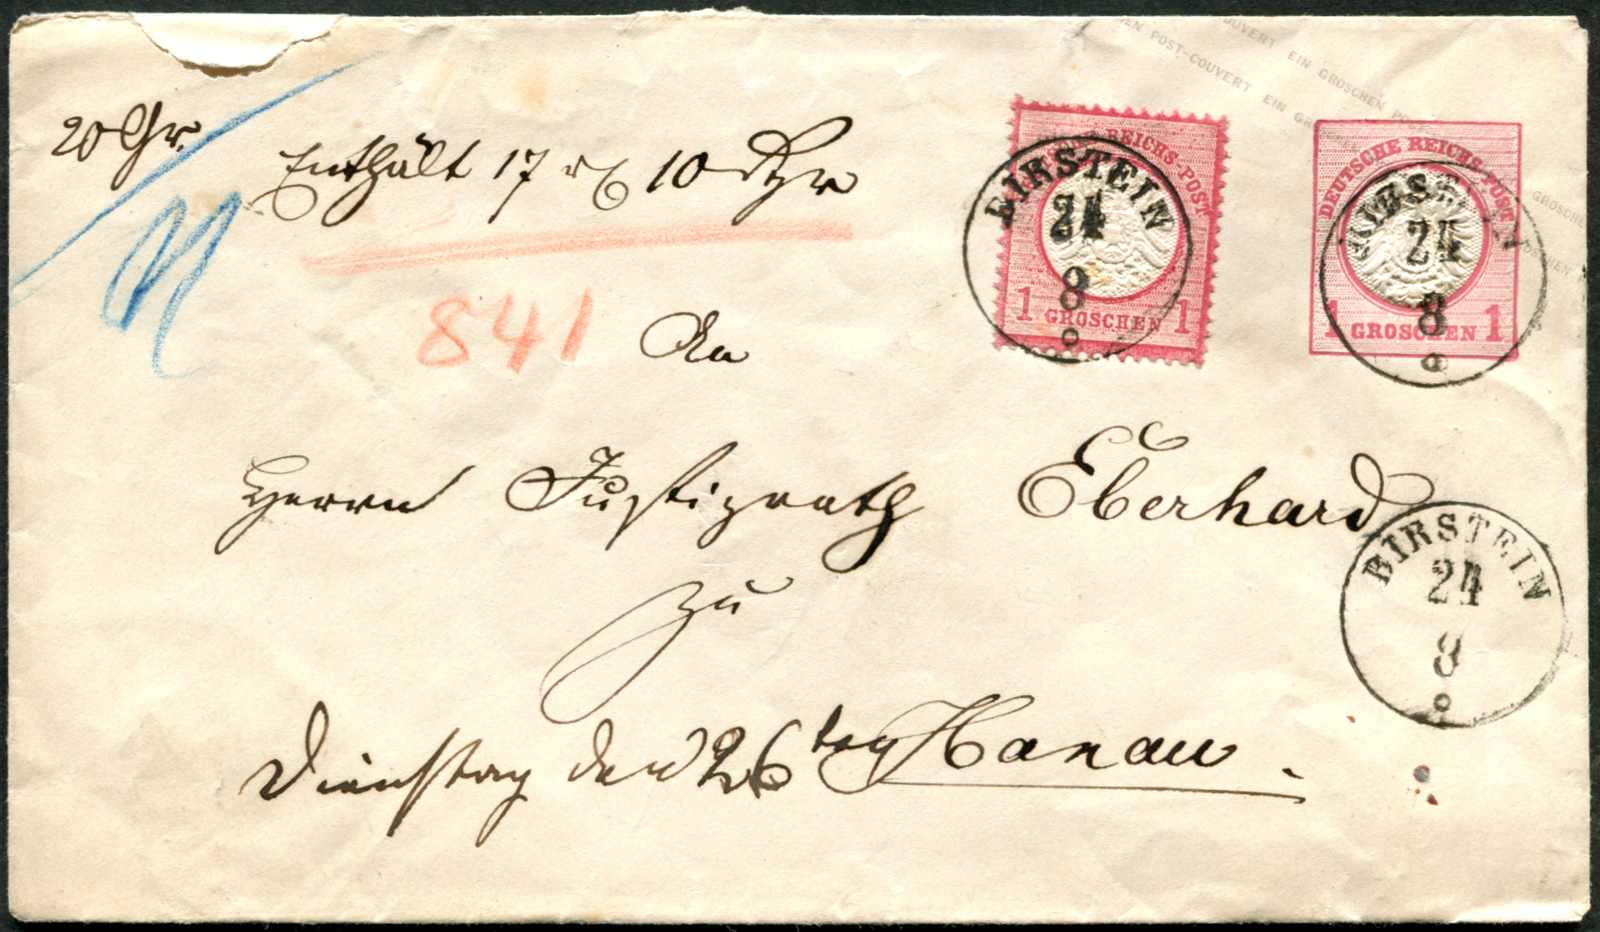 EIN GROSCHEN POST-COUVERT EIN GROSCHEN
POST-COUVERT EIN
20 Gr.
Enthält 17 rß 10 Sgr
DEUTSCHE REICHS-POST
1 GROSCHEN 1
BIRSTEIN
24
8
DEUTSCHE REICHS-POST
1 GROSCHEN 1
BIRSTEIN
24
8
841
An
Herrn Justizrath Eberhard
BIRSTEIN
24
8
zu
Dienstag den 26 Hanau.